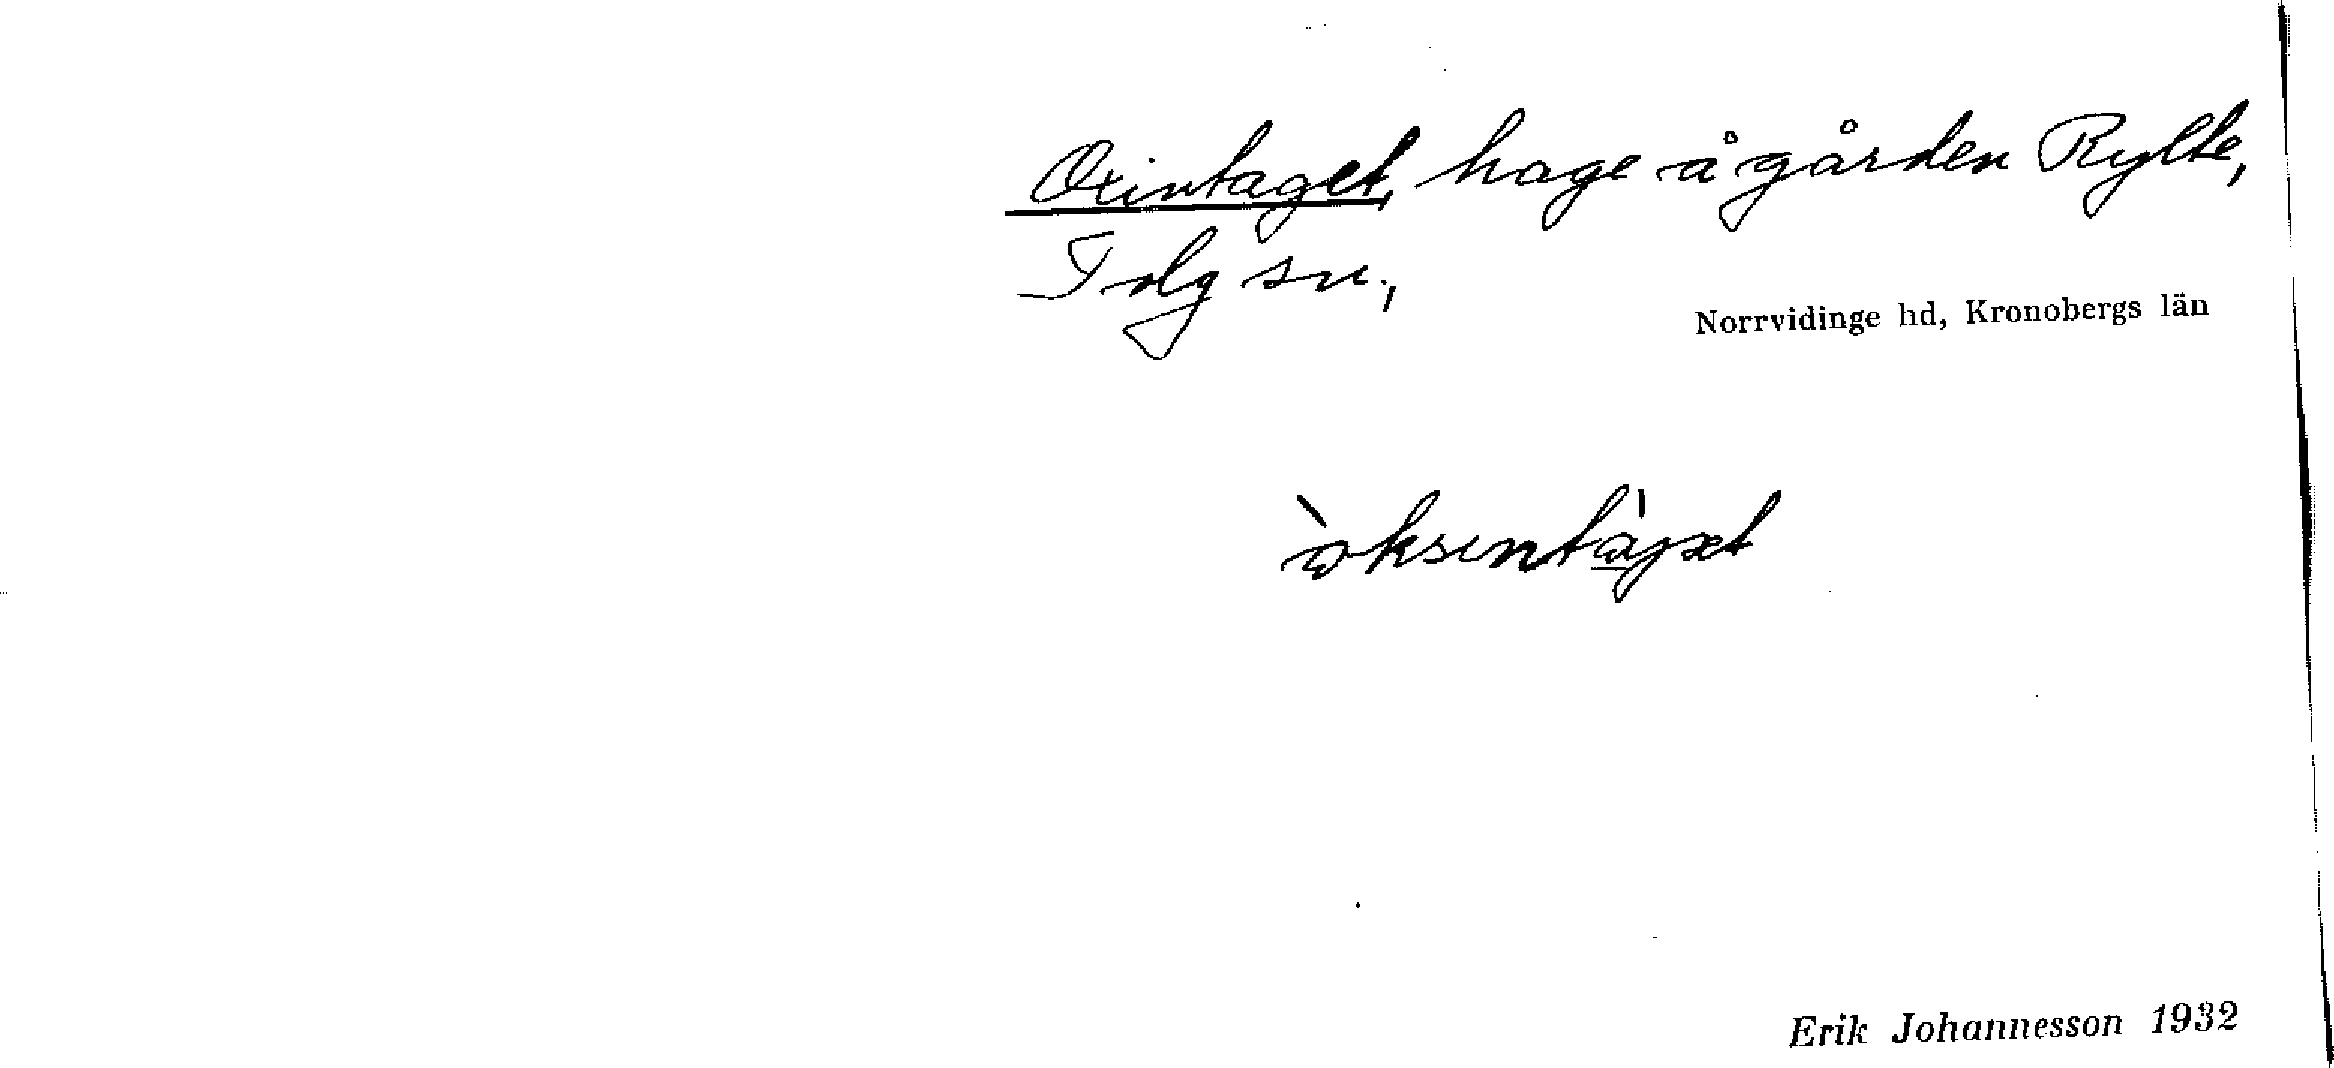 Oxintaget, hage å gården Rylte,
Tolg sn.,
Norrvidinge hd, Kronobergs län
Erik Johannesson 1932